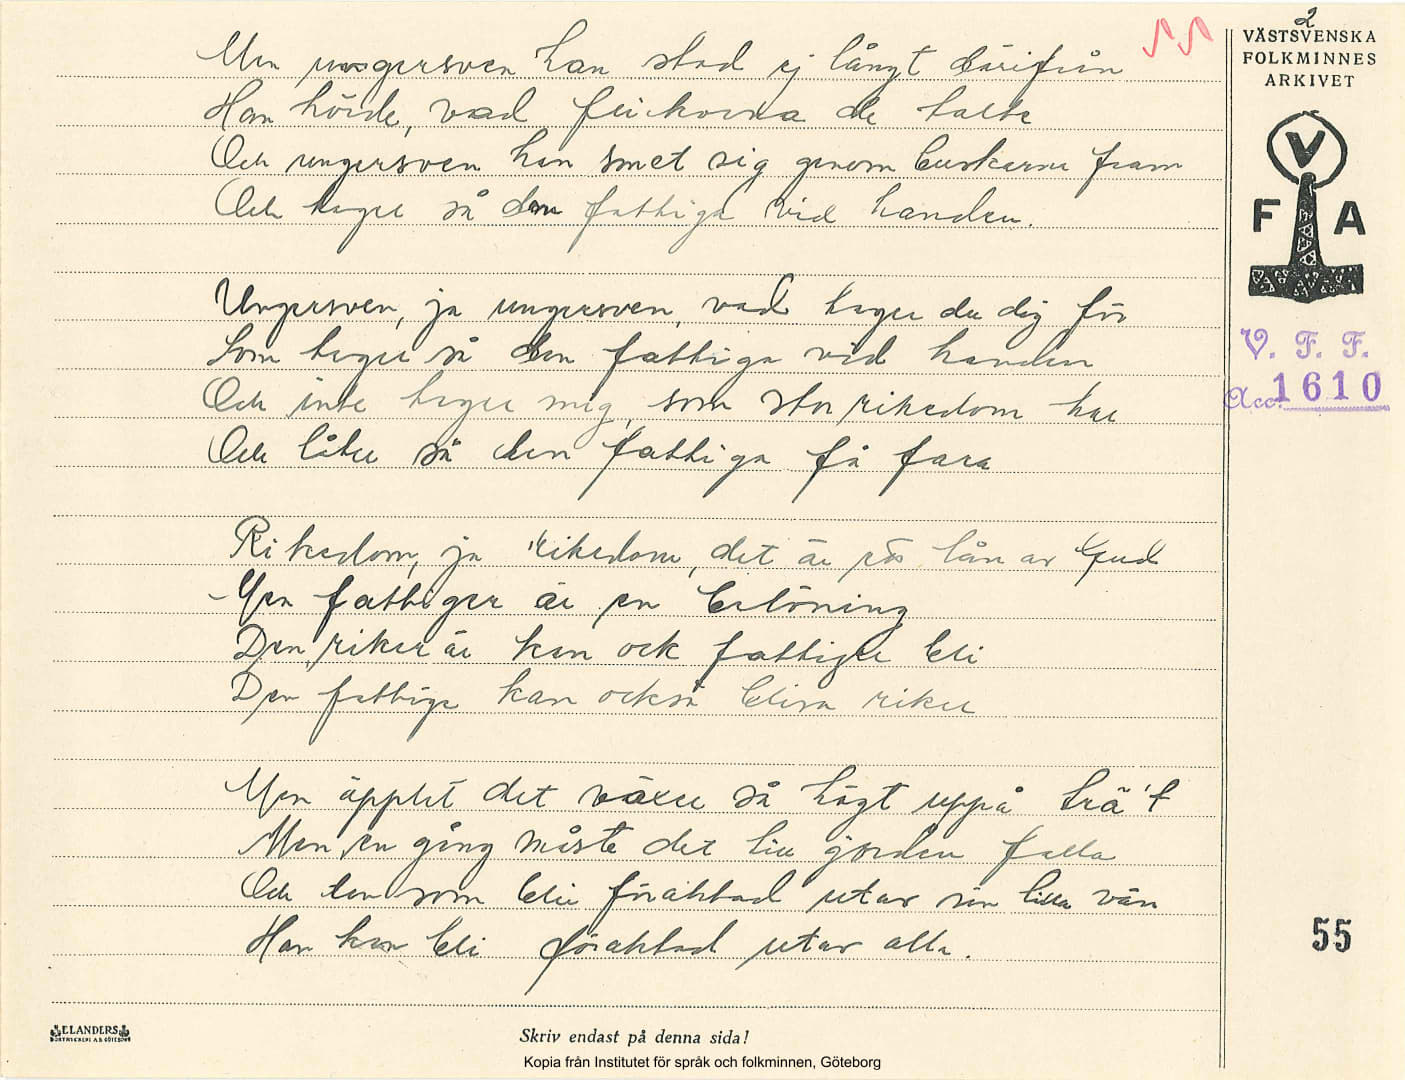 2
VÄSTSVENSKA
FOLKMINNES
ARKIVET
V
F A
V. F. F.
Acc. 1610
55
Men ungersven han stod ej långt därifrån
Han hörde, vad flickorna de talte
Och ungersven han smet sig genom buskarna fram
Och tager så den fattiga vid handen.
Ungersven, ja ungersven, vad tager du dig för
Som tager så den fattiga vid handen
Och inte tager mig, som stor rikedom har
Och låter så den fattiga få fara
Rikedom, ja rikedom, det är ett lån av Gud
Men fattiger är en belöning
Den riker är kan ock fattiger bli
Den fattige kan också bliva riker
Men äpplet det växer så högt uppå trä't
Men en gång måste det till jorden falla
Och den som blir föraktad utav sin lilla vän
Han kan bli föraktad utav alla.
ELANDERS
BOKTRYCKERI A.B. GÖTEBORG
Skriv endast på denna sida!
Kopia från Institutet för språk och folkminnen, Göteborg